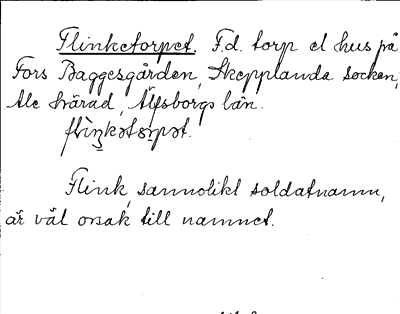 Flinketorpet. F.d. torp el hus på
Fors Baggesgården, Skepplanda socken,
Ale härad, Älvsborgs län.
flìŋkətɷrpət.
Flink, sannolikt soldatnamn,
är väl orsak till namnet.